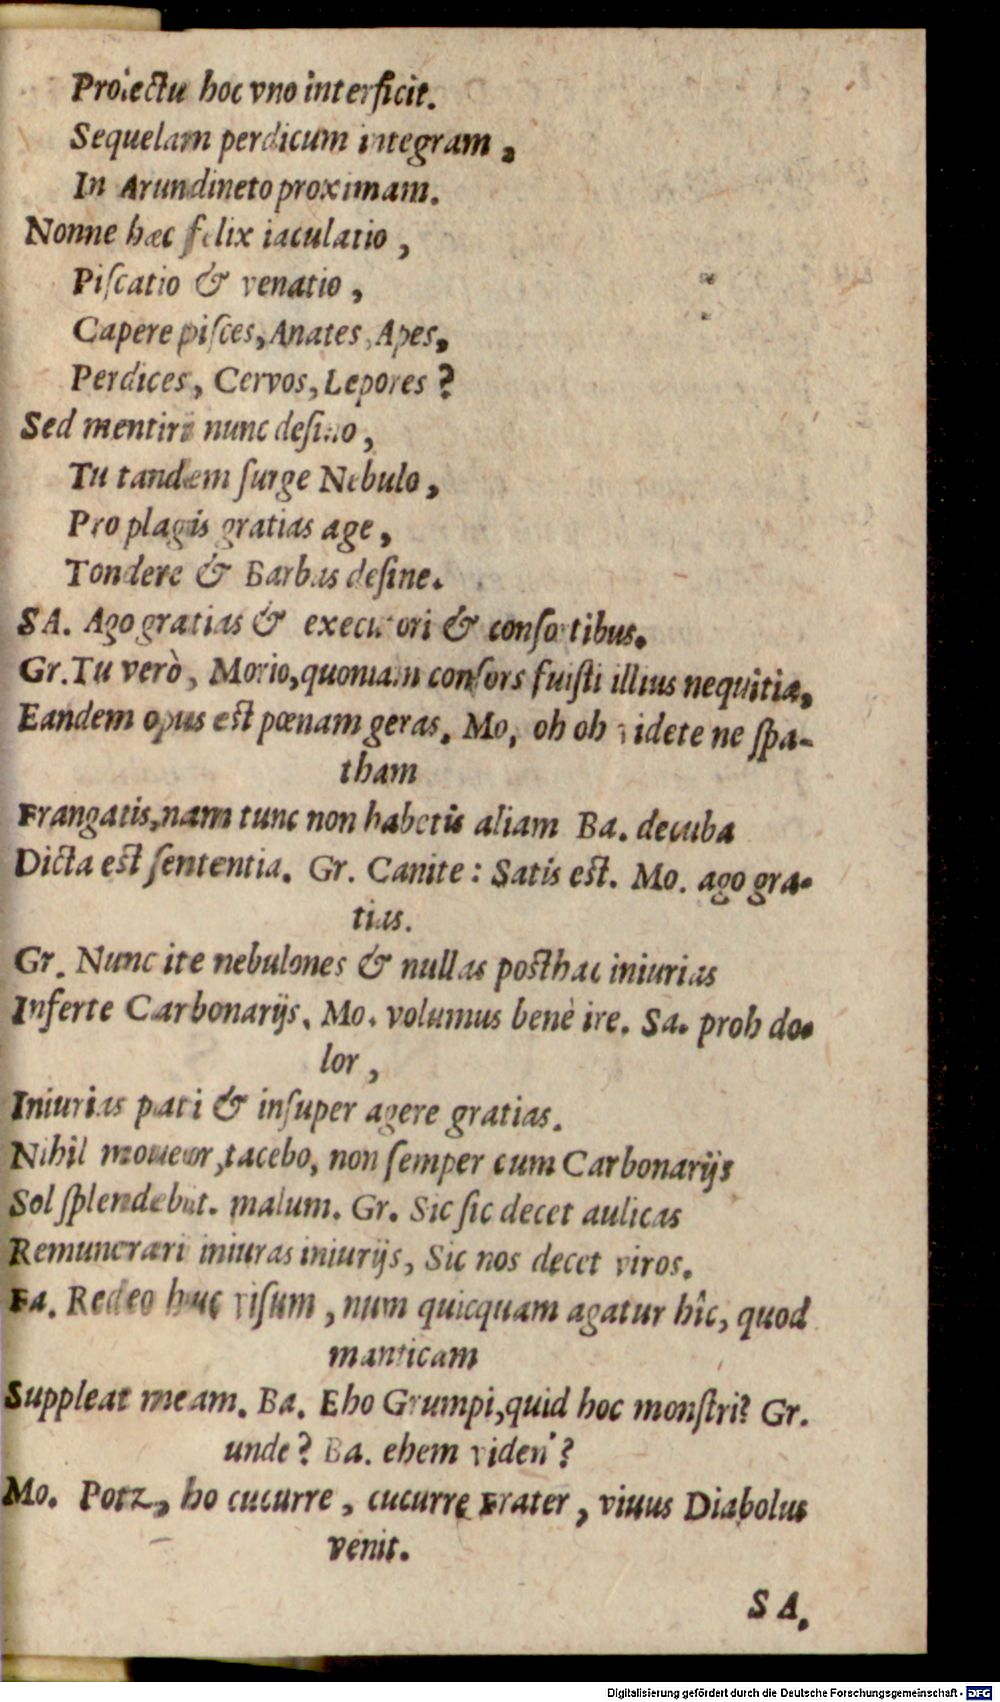 Proiectu hoc vno interficit.
Sequelam perdicum integram ,
In Arundineto proximam.
Nonne hæc felix iaculatio ,
Piſcatio & venatio ,
Capere piſces, Anates, Apes,
Perdices, Cervos, Lepores ?
Sed mentiri nunc deſino ,
Tu tandem ſurge Nebulo ,
Pro plagis gratias age ,
Tondere & Barbas deſine.
SA. Ago gratias & executori & conſortibus.
Gr. Tu verò, Morio, quoniam conſors fuiſti illius nequitiæ,
Eandem opus est pœnam geras. Mo, oh oh videte ne ſpa-
tham
Frangatis, nam tunc non habetis aliam Ba. decuba
Dicta est ſententia. Gr. Canite : Satis est. Mo. ago gra-
tias.
Gr. Nunc ite nebulones & nullas posthac iniurias
Inferte Carbonarijs. Mo. volumus benè ire. Sa. proh do-
lor ,
Iniurias pati & inſuper agere gratias.
Nihil moueor, tacebo, non ſemper cum Carbonarijs
Sol ſplendebit. malum. Gr. Sic ſic decet aulicas
Remunerari iniuras iniurijs, Sic nos decet viros.
Fa. Redeo huc viſum , num quicquam agatur hîc, quod
manticam
Suppleat meam. Ba. Eho Grumpi, quid hoc monſtri? Gr.
unde ? Ba. ehem viden' ?
Mo. Potz, ho cucurre , cucurre Frater , viuus Diabolus
venit.
SA.
Digitalisierung gefördert durch die Deutsche Forschungsgemeinschaft - DFG